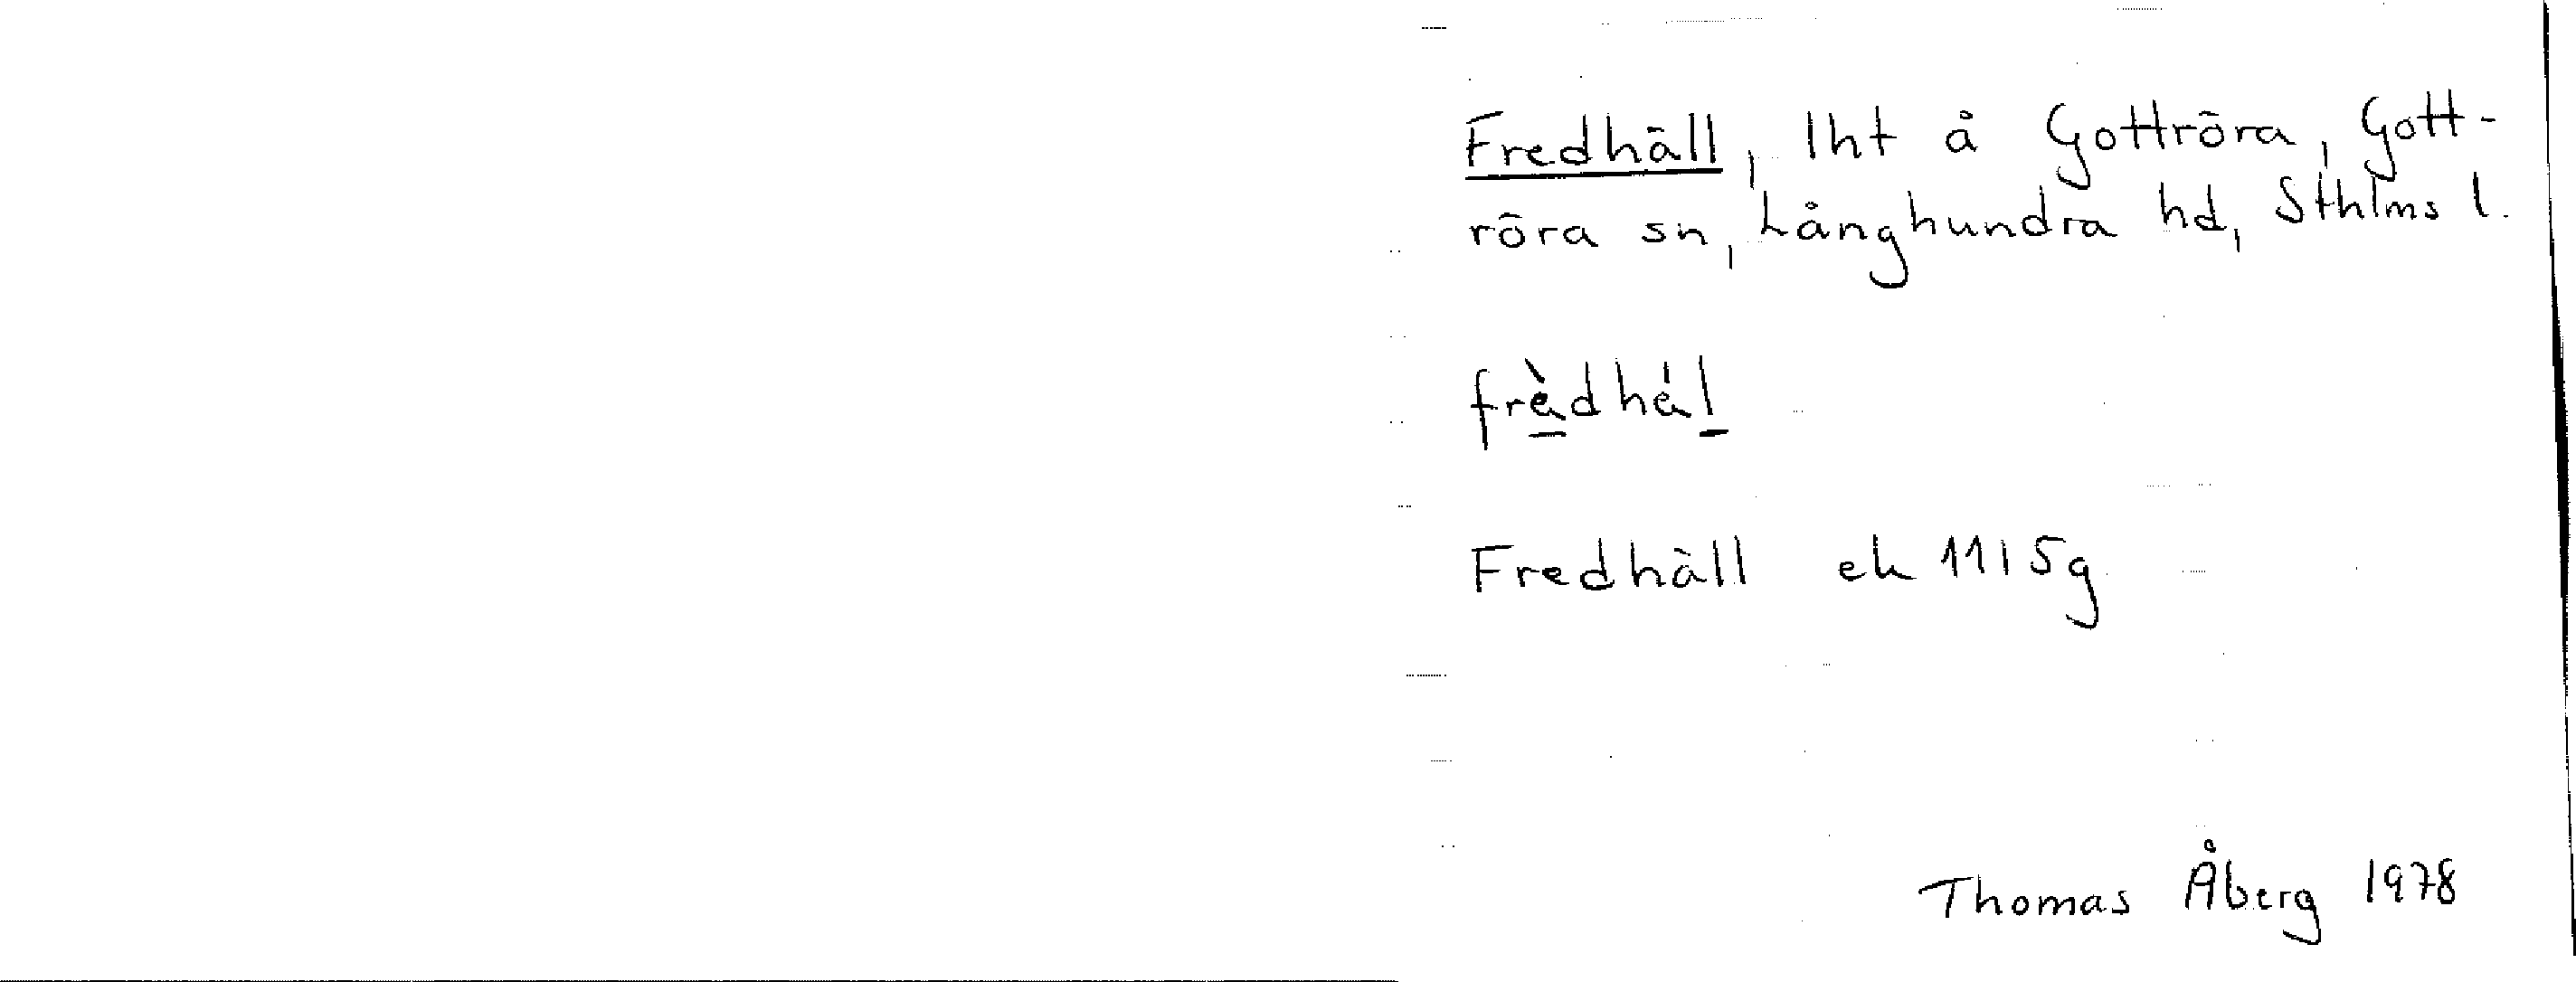 Fredhäll, lht å Gottröra, Gott-
röra sn, Långhundra hd, Sthlms l.
frèdhál
Fredhäll ek 11I5g
Thomas Åberg 1978